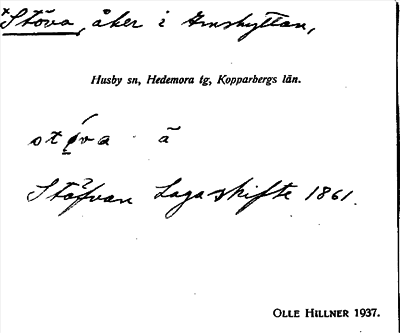 *Stöva, åker i Arnshyttan,
Husby sn, Hedemora tg, Kopparbergs län.
ā
Stäfvan Lagaskifte 1861.
OLLE HILLNER 1937.